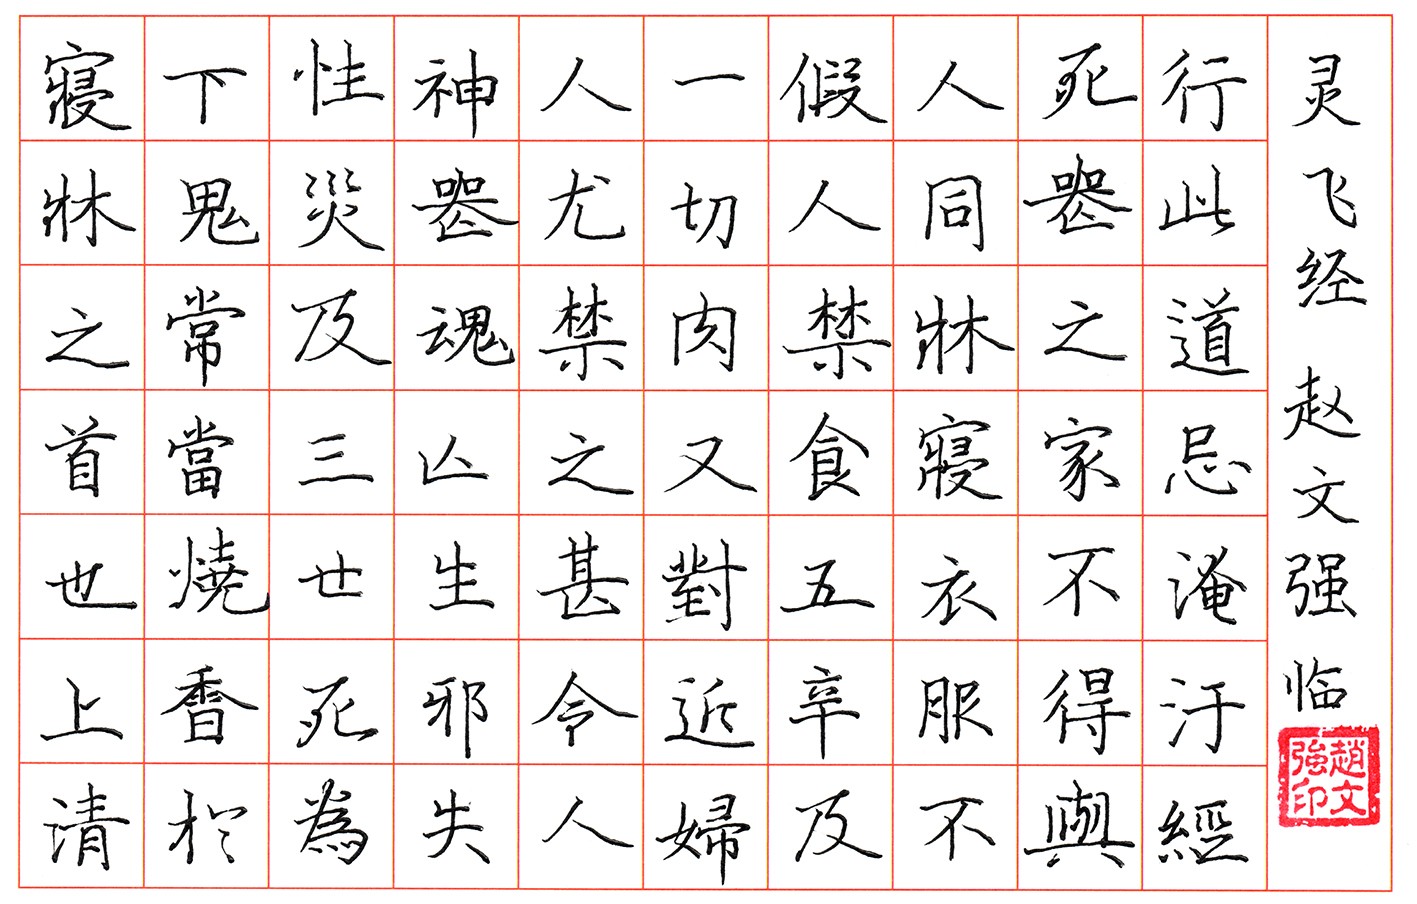 灵飞经 赵文强临
趙文強印
行此道忌淹汙經
死喪之家不得與
人同牀寢衣服不
假人禁食五辛及
一切肉又對近婦
人尤禁之甚令人
神喪魂亾生邪失
性災及三世死為
下鬼常當燒香於
寢牀之首也上清